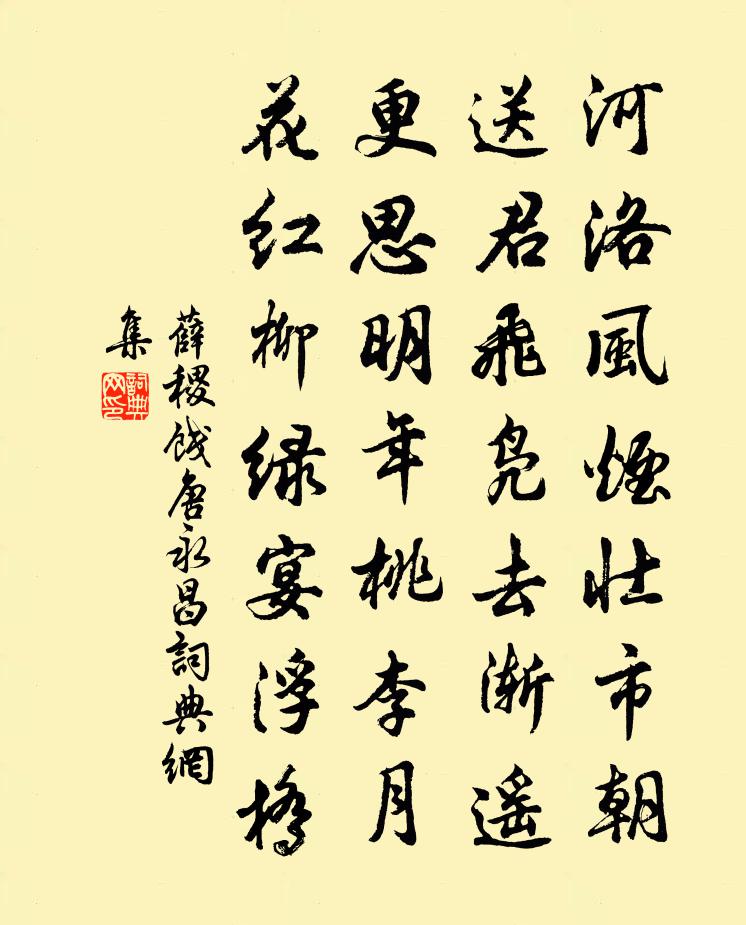 河洛風煙壯市朝
送君飛凫去漸遥
更思明年桃李月
花红柳绿宴浮橋
薛稷餞唐永昌詞典網
集
詞典网印